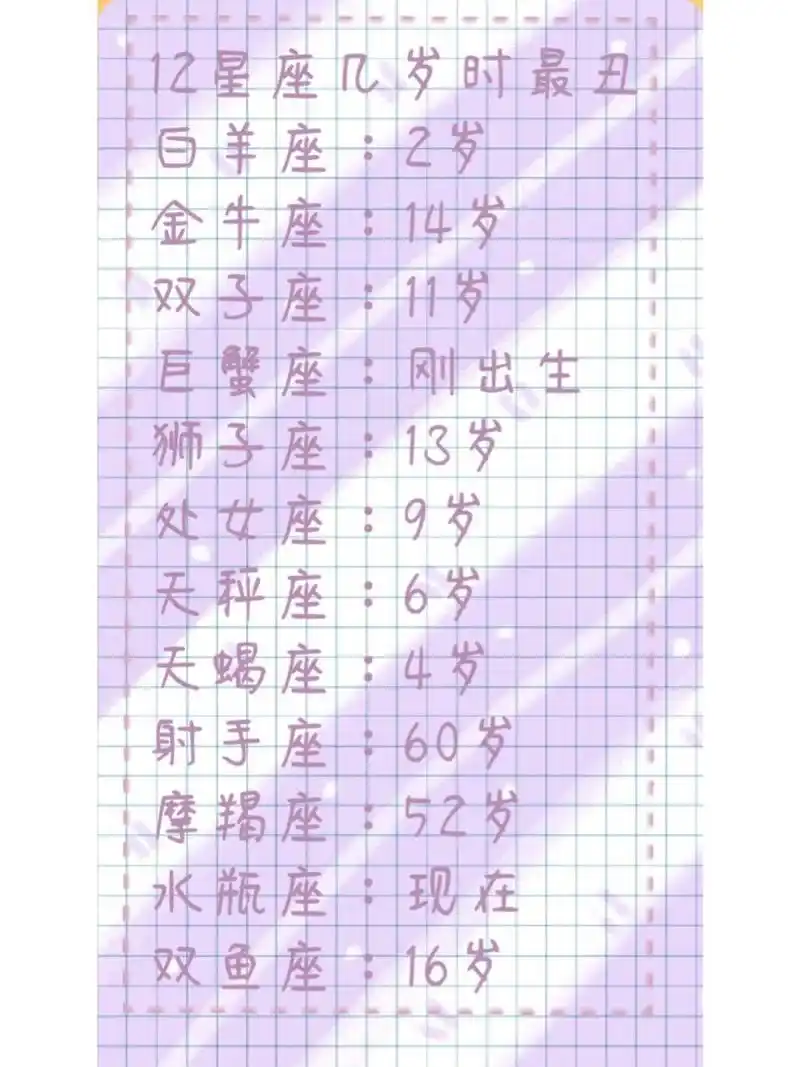 12星座几岁时最丑
白羊座:2岁
金牛座:14岁
双子座:11岁
巨蟹座:刚出生
狮子座:13岁
处女座:9岁
天秤座:6岁
天蝎座:4岁
射手座:60岁
摩羯座:52岁
水瓶座:现在
双鱼座:16岁